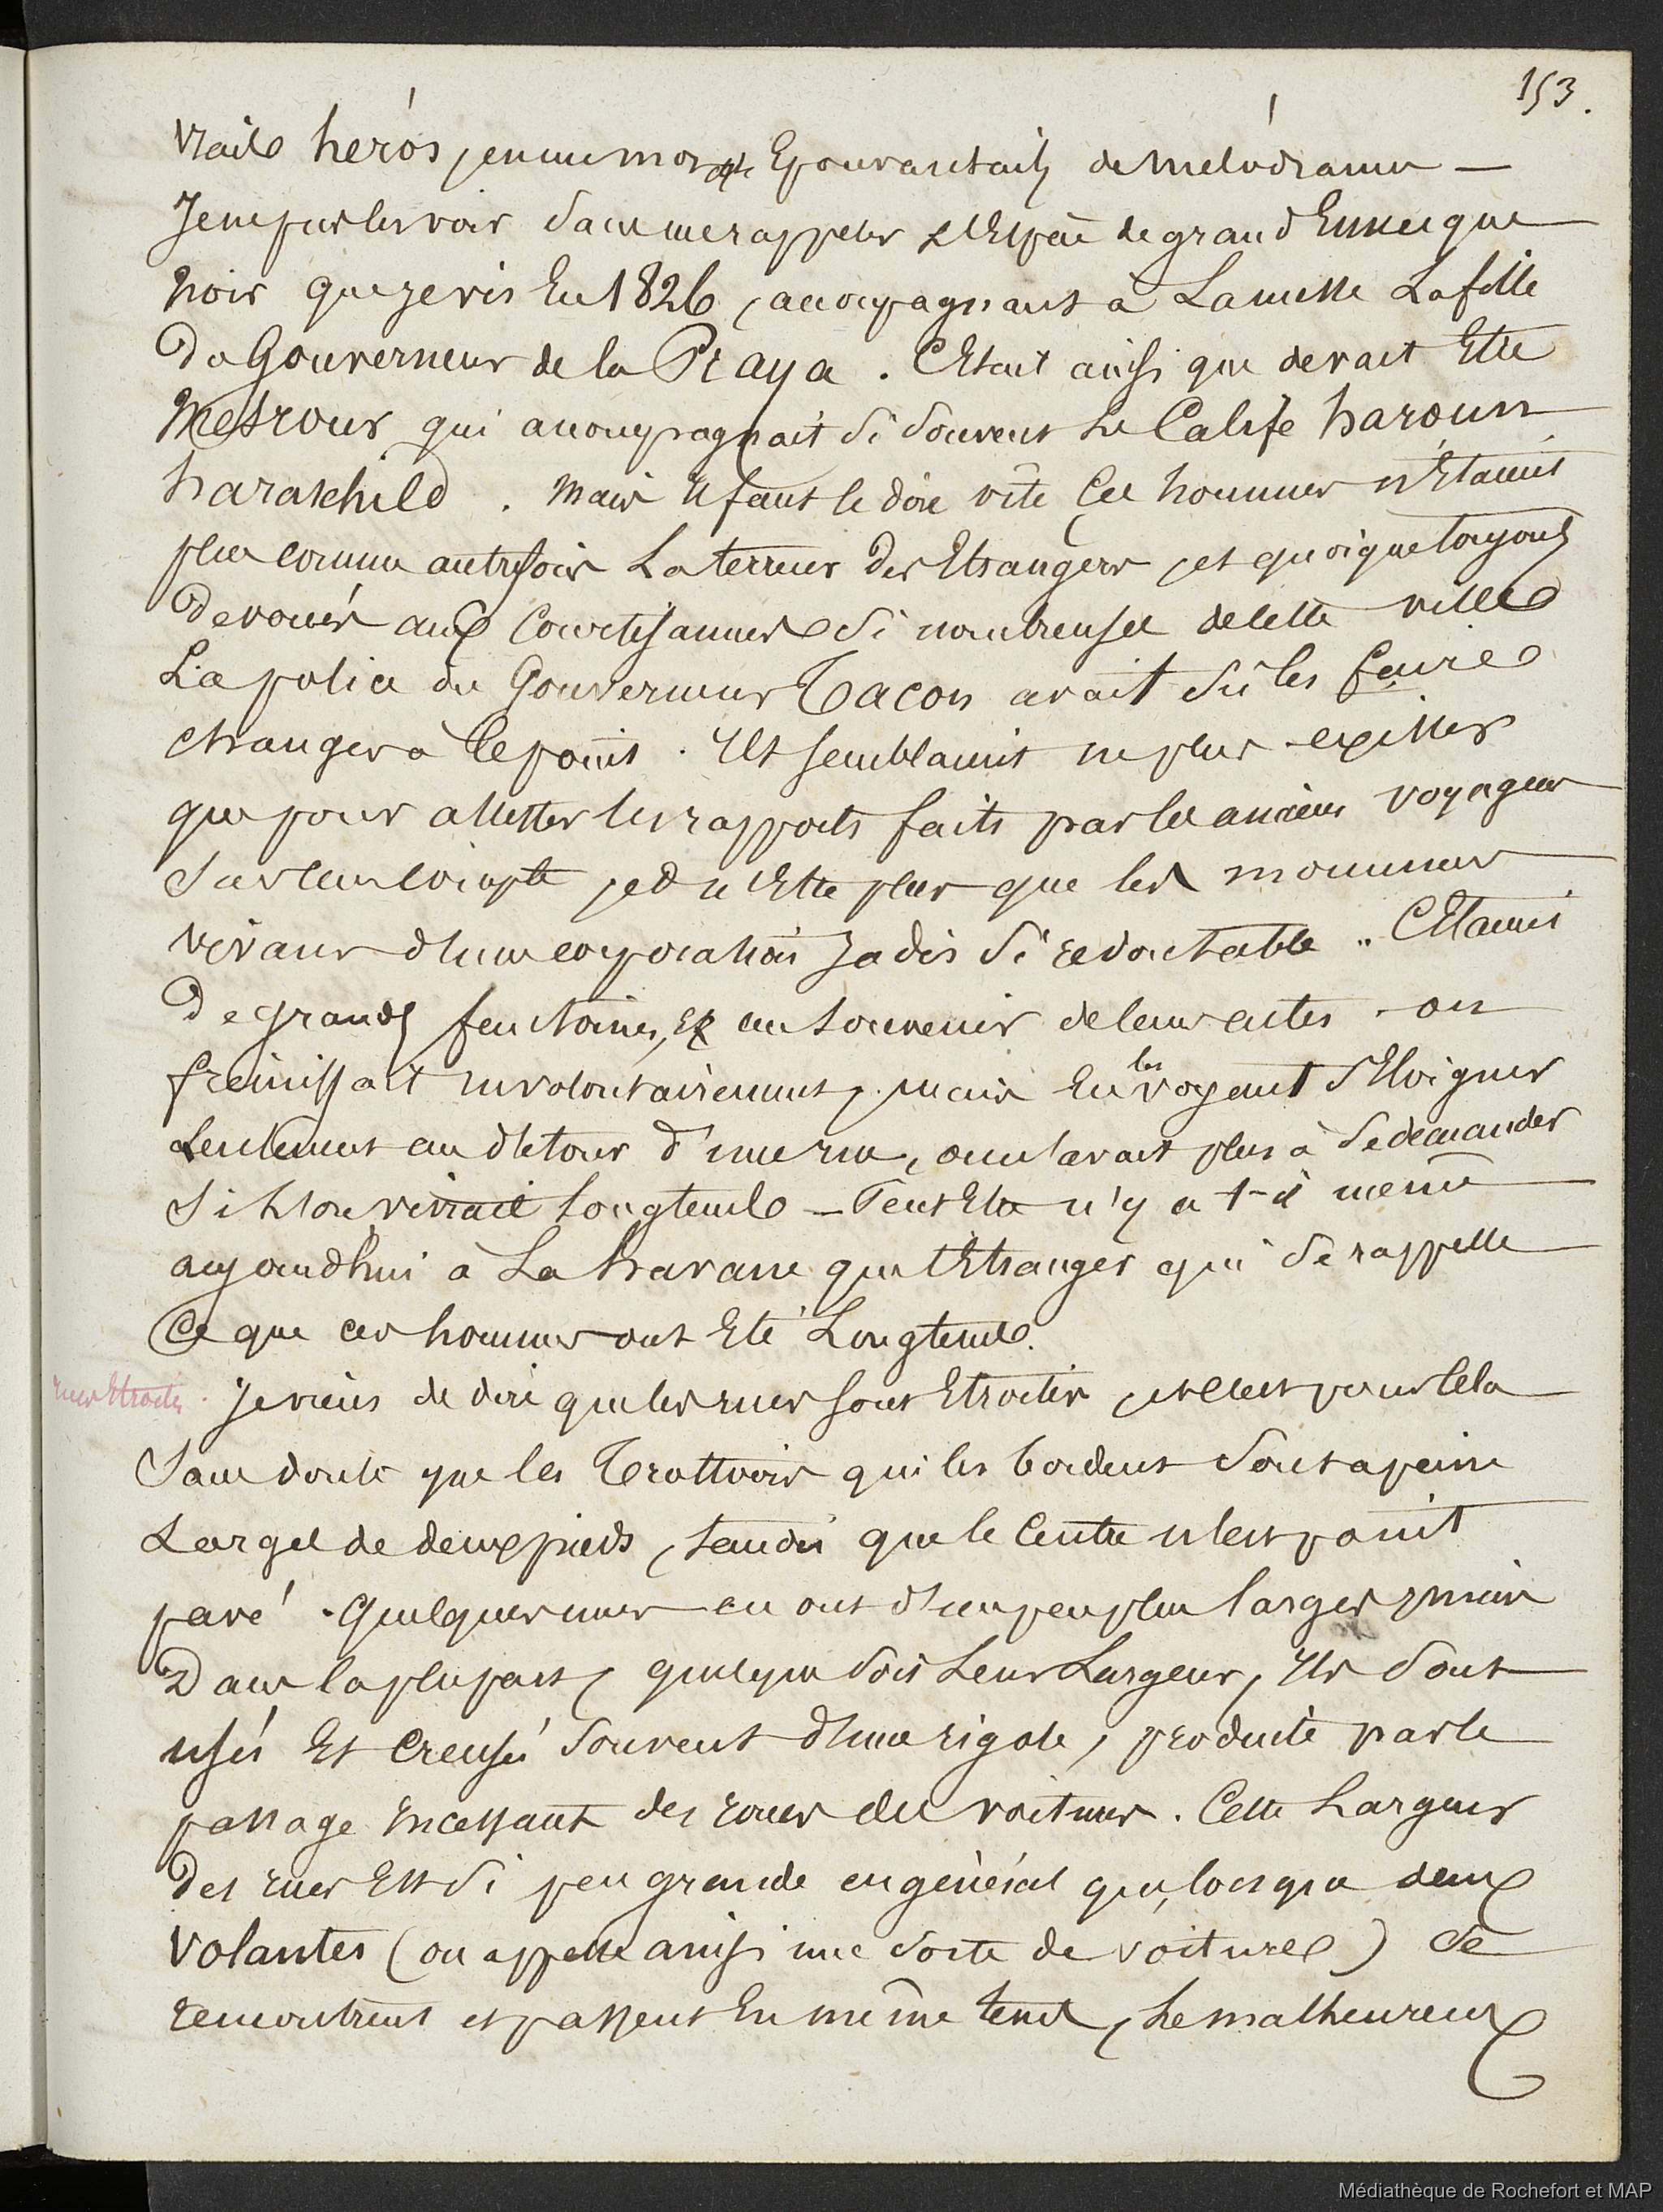 153.
Vrais heros, en un mot Epouvantails de mélodrame —
Je ne pus les voir sans me rappeler L'Espèce de grand Eunuque
Noir que je vis En 1826, accompagnant à La messe La fille
Du Gouverneur de la Praya. C'Etait ainsi que devait Etre
Mesrour qui accompagnait si souvent Le Calife haroun
haraschild. Mais il faut le dire vite Ces hommes n'Etaient
plus comme autrefois La terreur des Etrangers, et quoique toujours
Devoués aux Courtisannes si nombreuses de cette ville
La police du Gouverneur Tacon avait sû les faire
changer à ce point. Ils semblaient ne plus exister
que pour attester les rapports faits par les anciens voyageurs
Sur leur compte, et n'Etre plus que les momumens
vivans d'une corporation Jadis si redoutable.. C'Etaient
De grands fantomes, Et au souvenir de leurs actes on
fremissait involontairement, mais En les voyant s'Eloigner
seulement au détour d'une rue, on n'avait plus à se demander
Si L'on vivrait longtems — Peut Etre n'y a t-il même
aujourd'hui à La havane que l'Etranger qui se rappelle
Ce que ces hommes ont Eté Longtems.
rues Etroites. Je viens de dire que les rues sont Etroites, et c'est pour cela
Sans doute que les Trottoirs qui les bordent sont à peine
Larges de deux pieds, tandis que le Centre n'est point
pavé. Quelques rues en ont d'un peu plus larges, mais
Dans la plupart, quelque soit Leur Largeur, Ils sont
usés Et Creusés souvent d'une rigole, produite par le
passage incessant des roues des voitures. Cette Largeur
Des rues Est si peu grande en général que, lorsque deux
Volantes (on appelle ainsi une sorte de voitures) se
rencontrent et passent En même tems, Le malheureux
Médiathèque de Rochefort et MAP